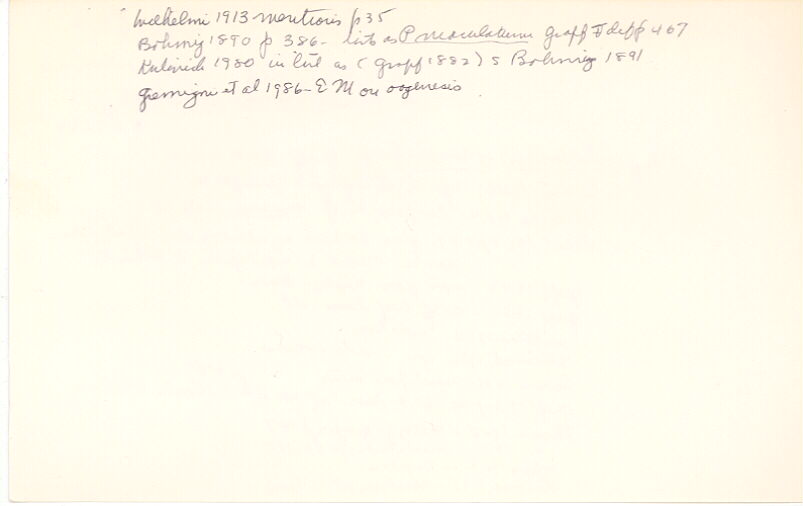 Wilhelmi 1913 mentions p35
Bohmig 1890 p 386 - lists as P maculatum Graff def p 467
1980 in list as (Graff 1882) s Bohmig 1891
Gremigni et al 1986 - EM on oogenesis